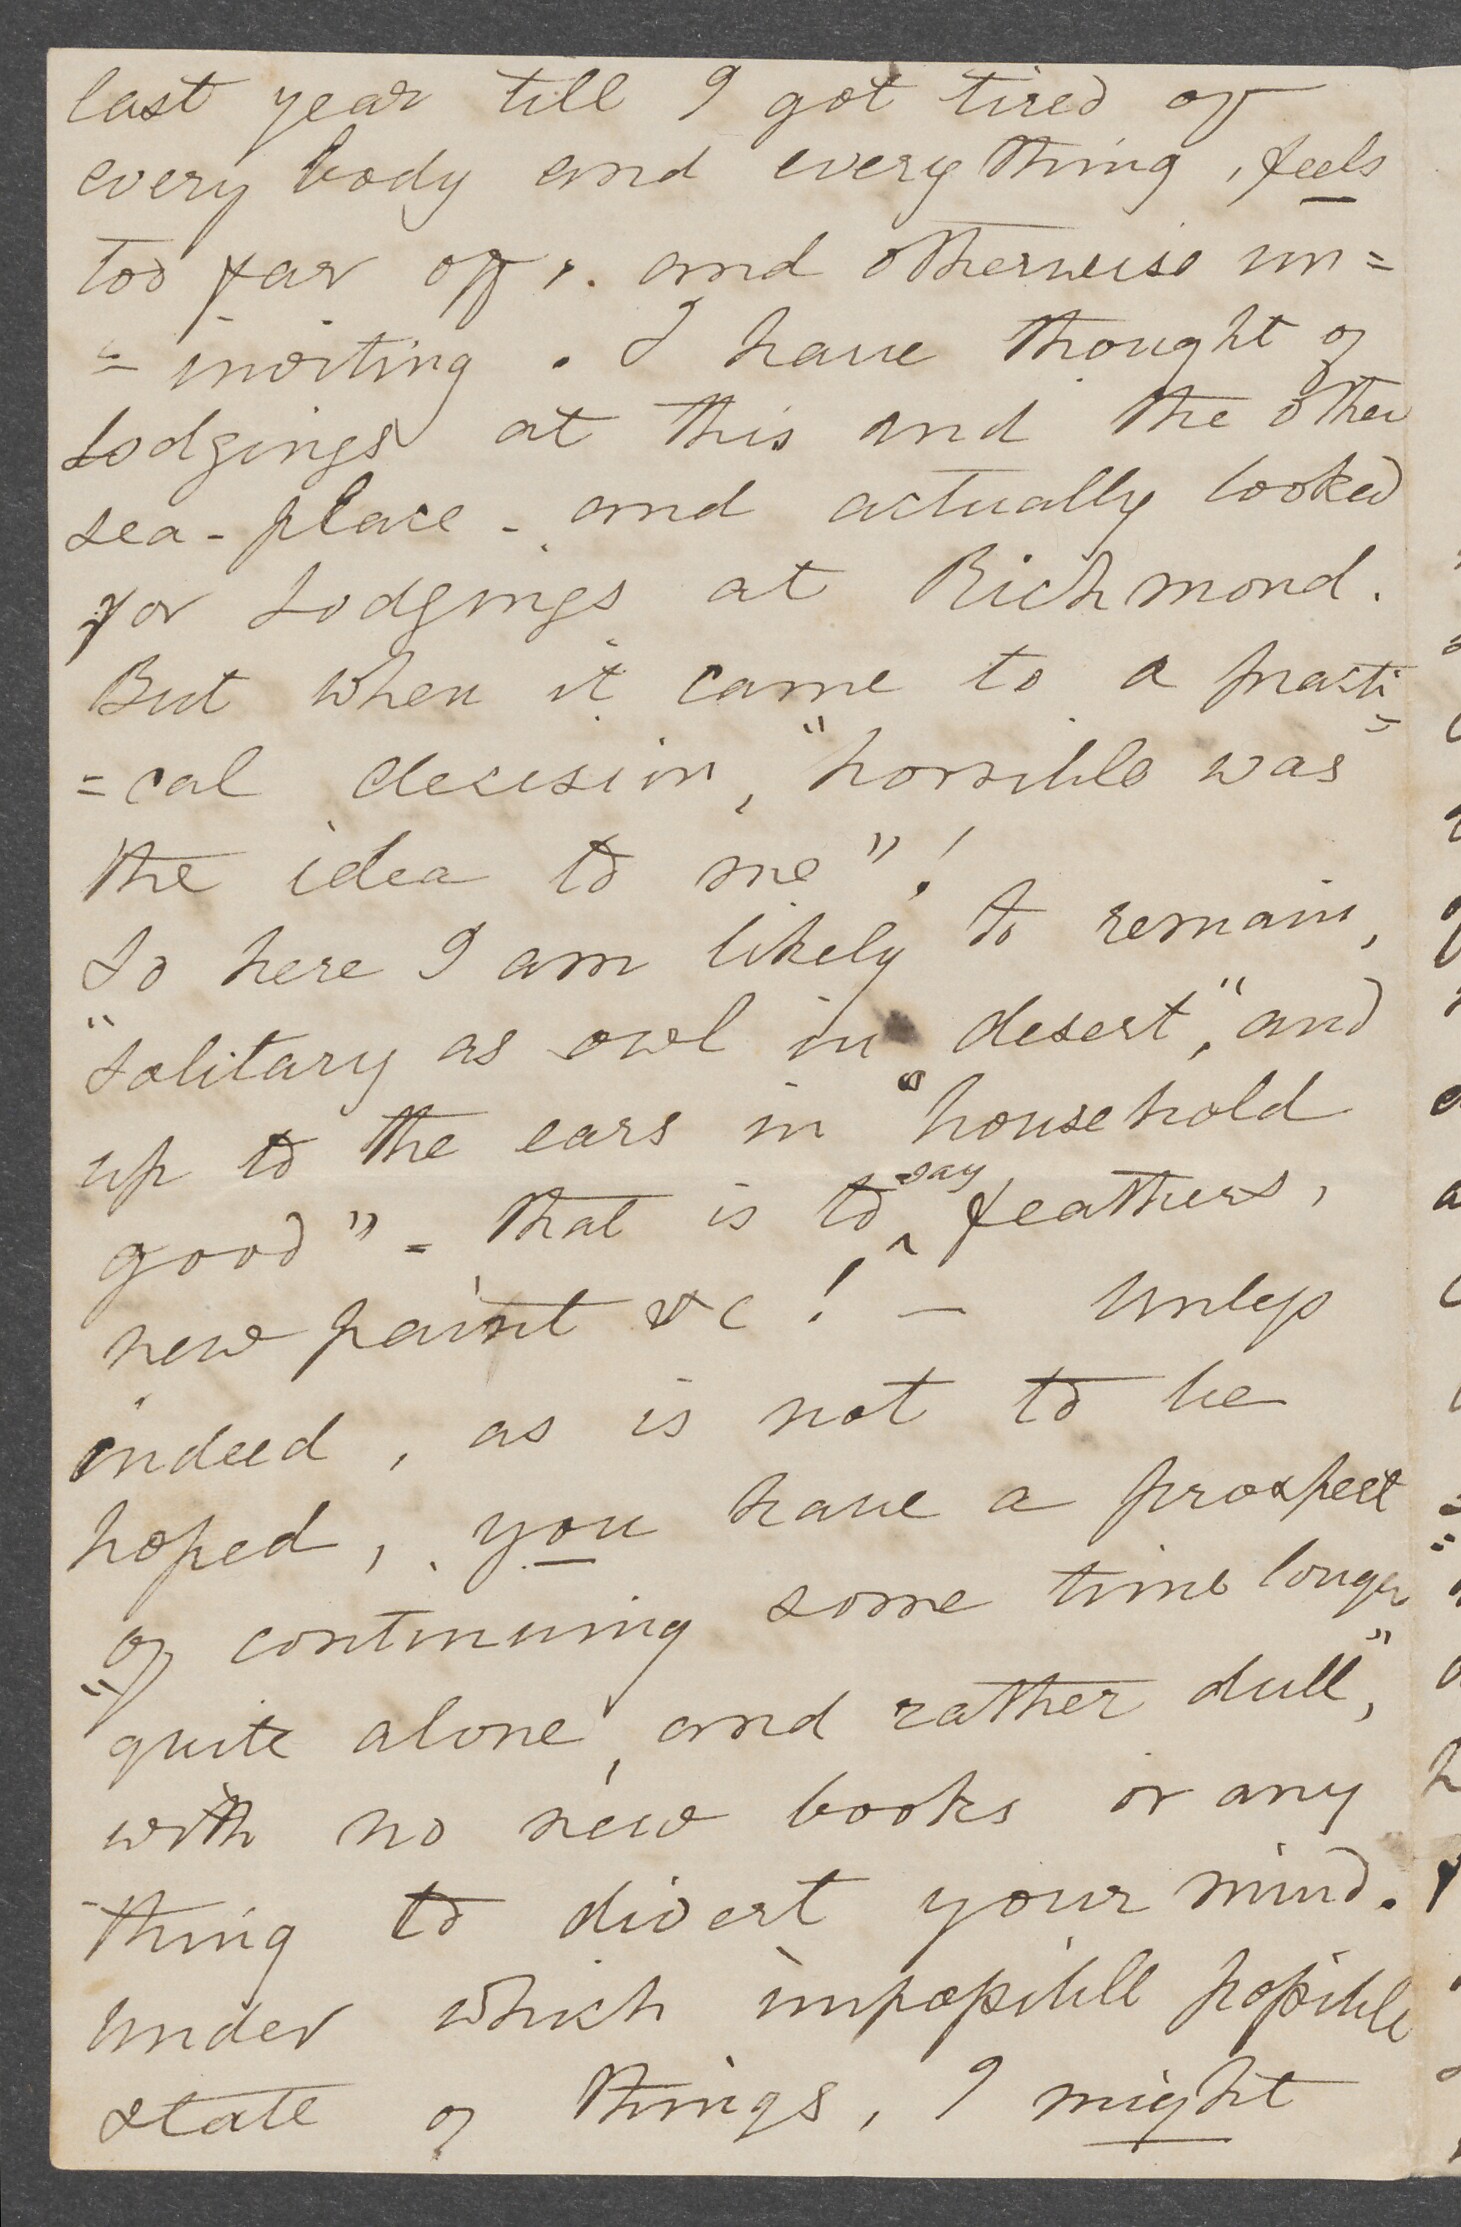 last year till I got tired of
every body and every thing, feels
too far off, and otherwise un=
=inviting. I have thought of
Lodgings at this and the other
sea-place - and actually looked
for Lodgings at Richmond.
But when it came to a practi=
=cal decision, "horrible was"
the idea to me"!
So here I am likely to remain,
"solitary as owl in desert," and
up to the ears in "household
good" - that is to say feathers,
new paint &c! — Unless
indeed, as is not to be
hoped, you have a prospect
of continuing some time longer
"quite alone, and rather dull,"
with no new books or any
thing to divert your mind.
Under which impossible possible
state of things, I might